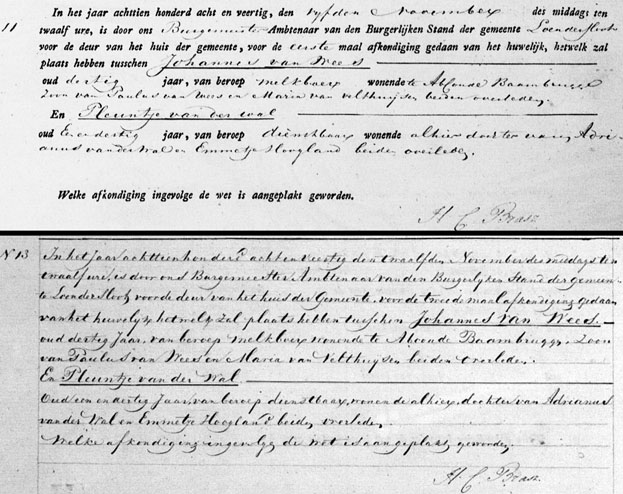 In het jaar achttien honderd acht en veertig, den vyfden November des middags ten
11 twaalf ure, is door ons Burgemeester Ambtenaar van den Burgerlijken Stand der gemeente Loendersloot
voor de deur van het huis der gemeente, voor de eerste maal afkondiging gedaan van het huwelijk, hetwelk zal
plaats hebben tusschen Johannes van Wees
oud dertig jaar, van beroep melkboer wonende te Abcoude Baambrugge
Zoon van Paulus van Wees en Maria van Velthuijsen beiden overleden.
En Pleuntje van der Wal
oud Een en dertig jaar, van beroep dienstbaar wonende alhier dochter van Adri-
anus van der Wal en Emmetje Hoogland beiden overleden.
Welke afkondiging ingevolge de wet is aangeplakt geworden.
H C Brasz.
No 13 In het jaar achttien honderd acht en veertig den twaalfden November des middags ten
twaalf ure, is door ons Burgemeester Ambtenaar van den Burgerlyken Stand der gemeen-
te Loendersloot voor de deur van het huis der Gemeente, voor de tweede maal afkondiging gedaan
van het huwelyk hetwelk zal plaats hebben tusschen Johannes van Wees.
oud dertig Jaar, van beroep Melkboer wonende te Abcoude Baambrugge, Zoon
van Paulus van Wees en Maria van Velthuysen beiden overleden.
En Pleuntje van der Wal
Oud een en dertig Jaar, van beroep dienstbaar, wonende alhier, dochter van Adrianus
van der Wal en Emmetje Hoogland beiden overleden.
Welke afkondiging ingevolge de wet is aangeplakt geworden.
H. C. Brasz.